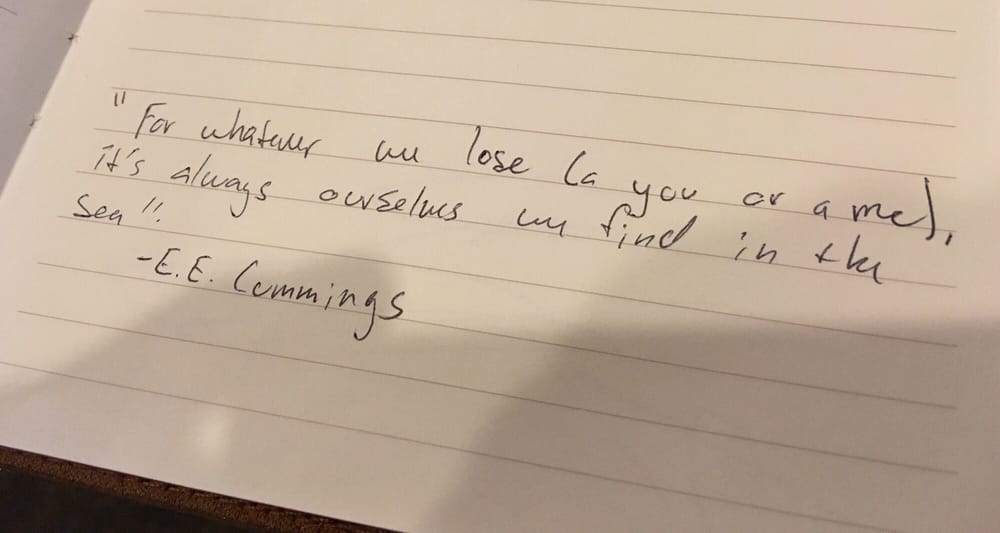 "For whatever we lose (a you or a me),
it's always ourselves we find in the
Sea".
-E.E. Cummings